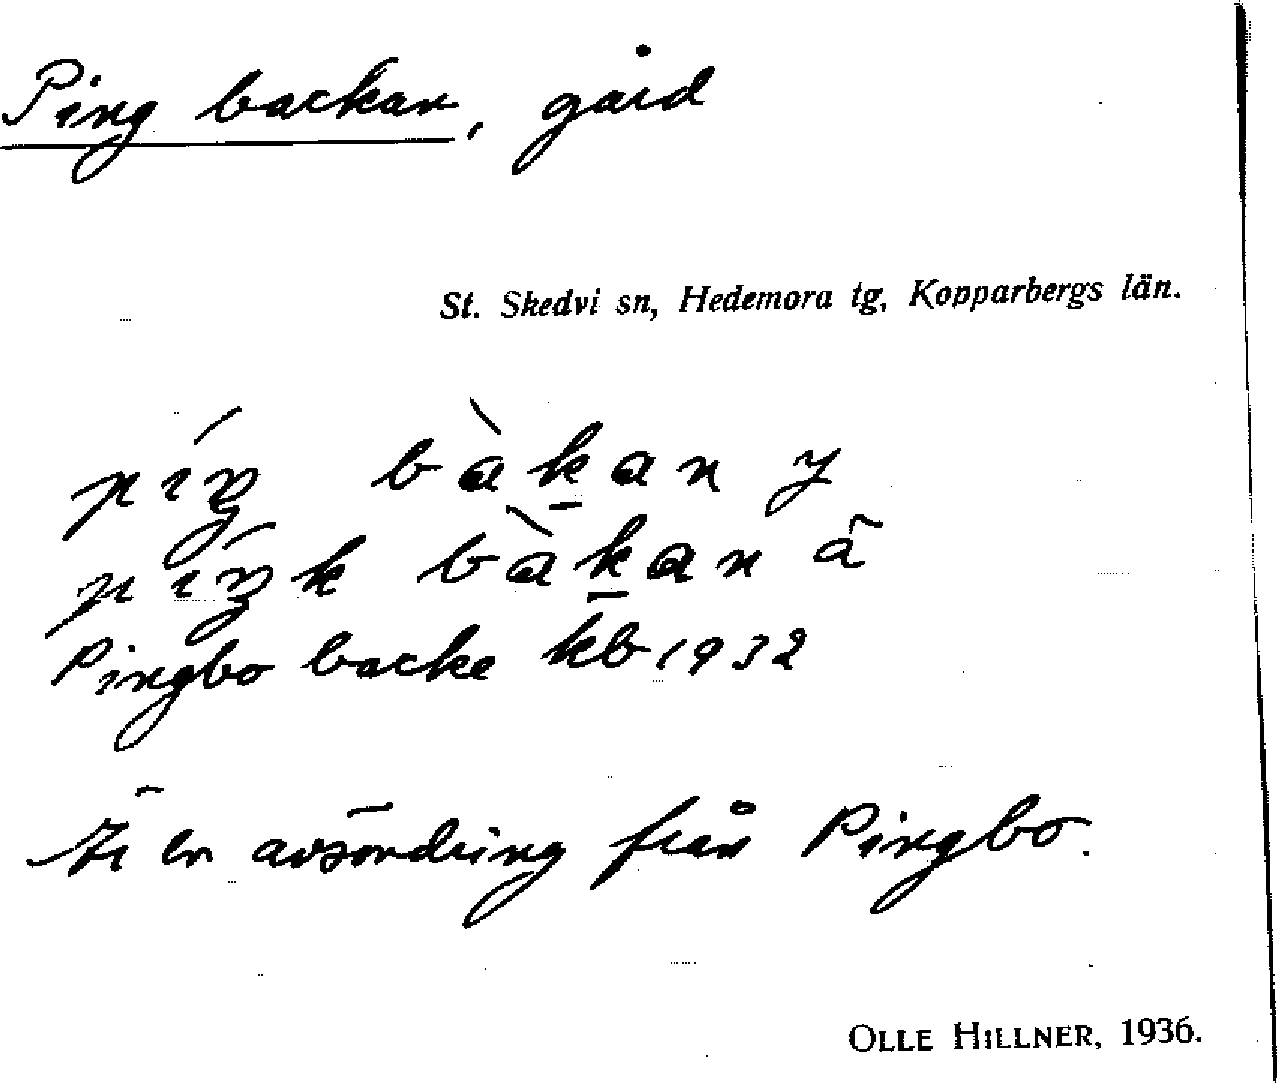 Ping backan, gård
St. Skedvi sn, Hedemora tg, Kopparbergs län.
píŋ bàk̠an y
píŋk bàk̠an ã
Pingbo backe kb 1932
Är en avsöndring från Pingbo.
OLLE HILLNER, 1936.